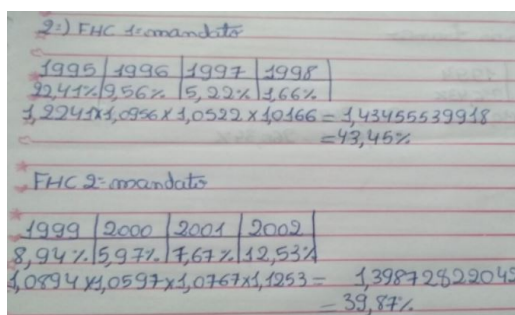 2:) FHC 1º mandato
1995 | 1996 | 1997 | 1998
22,41% | 9,56% | 5,22% | 1,66%
1,2241x1,0956x1,0522x1,0166=1,43455539918
=43,45%
FHC 2º mandato
1999 | 2000 | 2001 | 2002
8,94% | 5,97% | 7,67% | 12,53%
1,0894x1,0597x1,0767x1,1253= 1,39872822049
= 39,87%